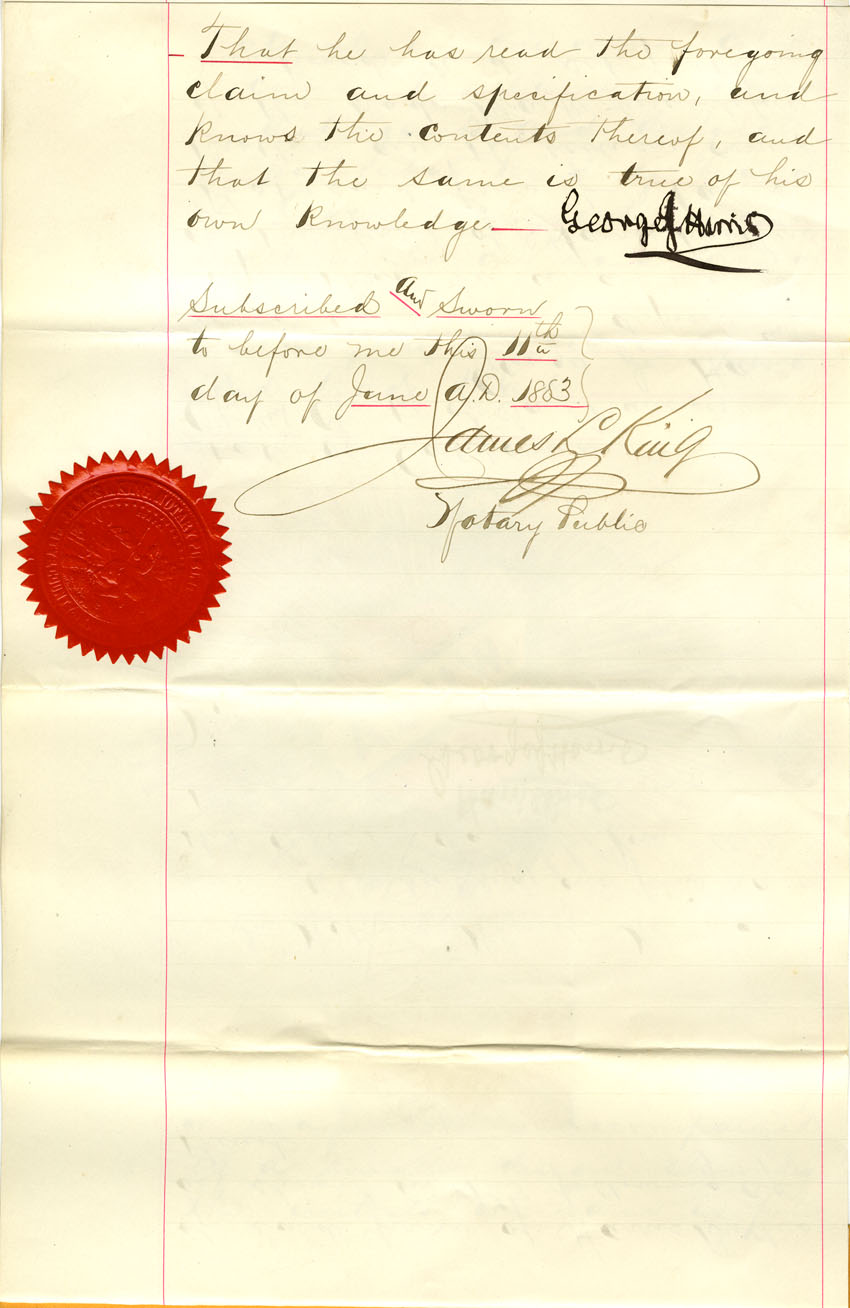 That he has read the foregoing
claim and specification, and
knows the contents thereof, and
that the same is true of his
own knowledge. George J Harris
Subscribed and Sworn
to before me this 11th
day of June A.D. 1883
James L King
Notary Public